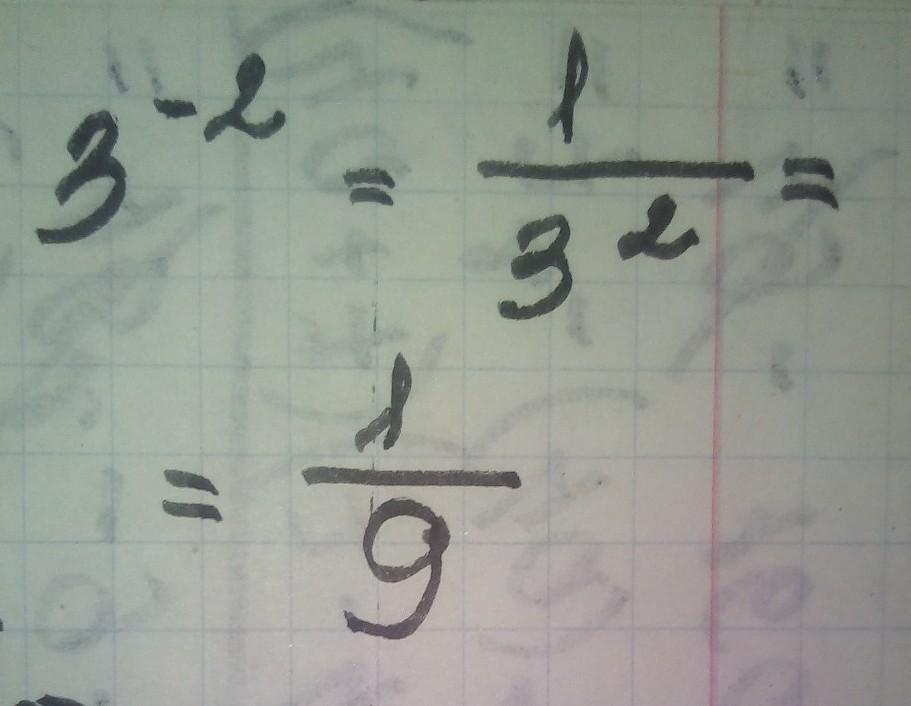 3⁻² = 1/3² =
= 1/9